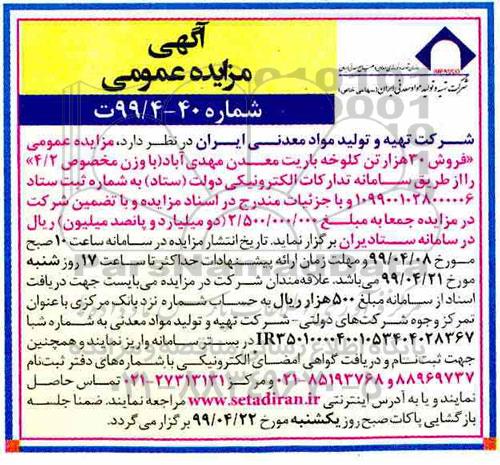 آگهی
مزایده عمومی
شماره ۴۰-۹۹/۴ت
شرکت تهیه و تولید مواد معدنی ایران (سهامی خاص)
شرکت تهیه و تولید مواد معدنی ایران در نظر دارد، مزایده عمومی
«فروش ۳۰هزار تن کلوخه باریت معدن مهدی آباد(با وزن مخصوص ۴/۲
را از طریق سامانه تدارکات الکترونیکی دولت (ستاد) به شماره ثبت ستاد
۱۰۹۹۰۰۱۰۲۸۰۰۰۰۰۶ و با جزییات مندرج در اسناد مزایده و با تضمین شرکت
در مزایده جمعا به مبلغ ۲/۵۰۰/۰۰۰/۰۰۰ (دو میلیارد و پانصد میلیون) ریال
در سامانه ستاد ایران برگزار نماید. تاریخ انتشار مزایده در سامانه ساعت ۱۰ صبح
مورخ ۹۹/۰۴/۰۸ و مهلت زمان ارائه پیشنهادات حداکثر تا ساعت ۱۷ روز شنبه
مورخ ۹۹/۰۴/۲۱ می‌باشد. علاقه‌مندان شرکت در مزایده می‌بایست جهت دریافت
اسناد از سامانه مبلغ ۵۰۰هزار ریال به حساب شماره نزد بانک مرکزی با عنوان
تمرکز وجوه شرکت‌های دولتی- شرکت تهیه و تولید مواد معدنی به شماره شبا
IR۳۵۰۱۰۰۰۰۴۰۰۱۰۵۳۴۰۴۰۲۸۳۶۷ در بستر سامانه واریز نمایند و همچنین
جهت ثبت‌نام و دریافت گواهی امضای الکترونیکی با شماره‌های دفتر ثبت‌نام
۸۸۹۶۹۷۳۷ و ۸۵۱۹۳۷۶۸ و مرکز ۲۷۳۱۳۱۳۱-۰۲۱ تماس حاصل
نمایند و یا به آدرس اینترنتی www.setadiran.ir مراجعه نمایند. ضمنا جلسه
بازگشایی پاکات صبح روز یکشنبه مورخ ۹۹/۰۴/۲۲ برگزار می گردد.